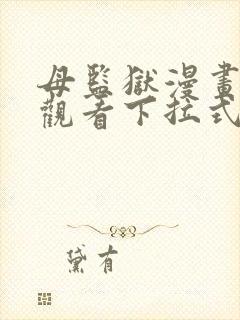 母監獄漫畫
觀看下拉式
黛有